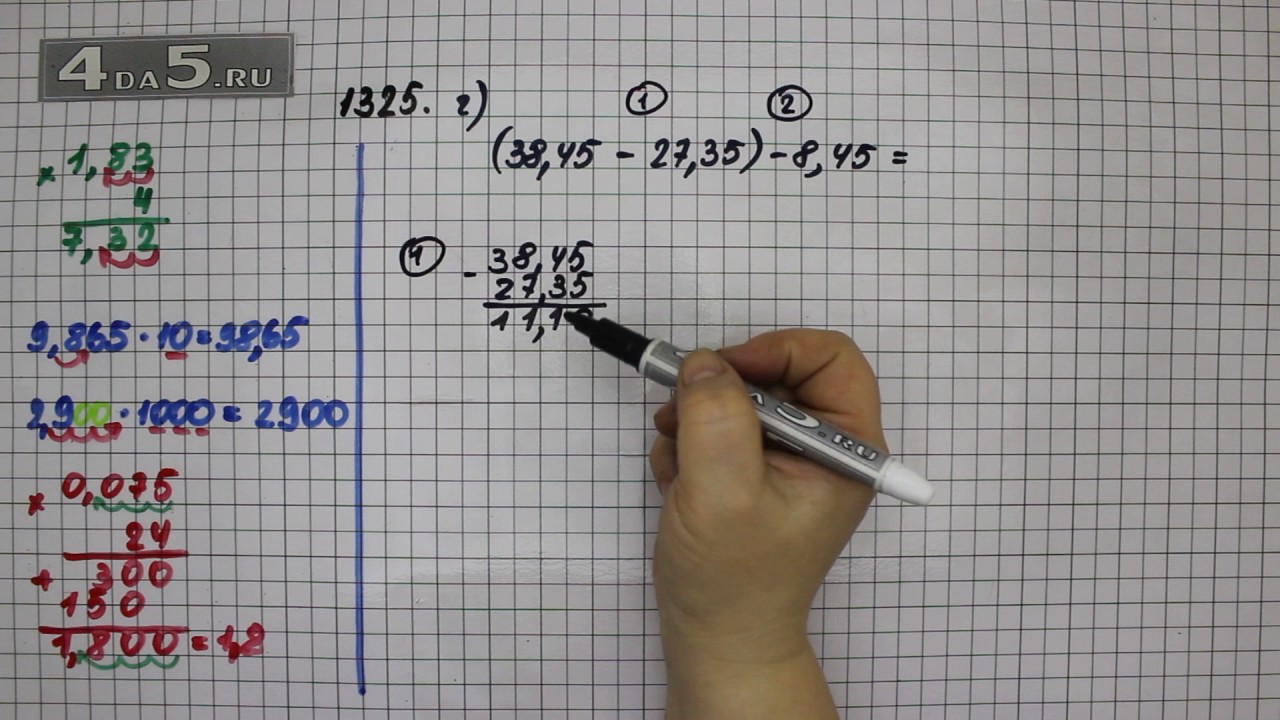 4DA5.RU
1325. г)
① ②
(38,45 - 27,35) - 8,45 =
× 1,83
4
7,32
9,865 · 10 = 98,65
2,900 · 1000 = 2900
× 0,075
24
+ 300
150
1,800 = 1,8
① - 38,45
27,35
11,1
.RU